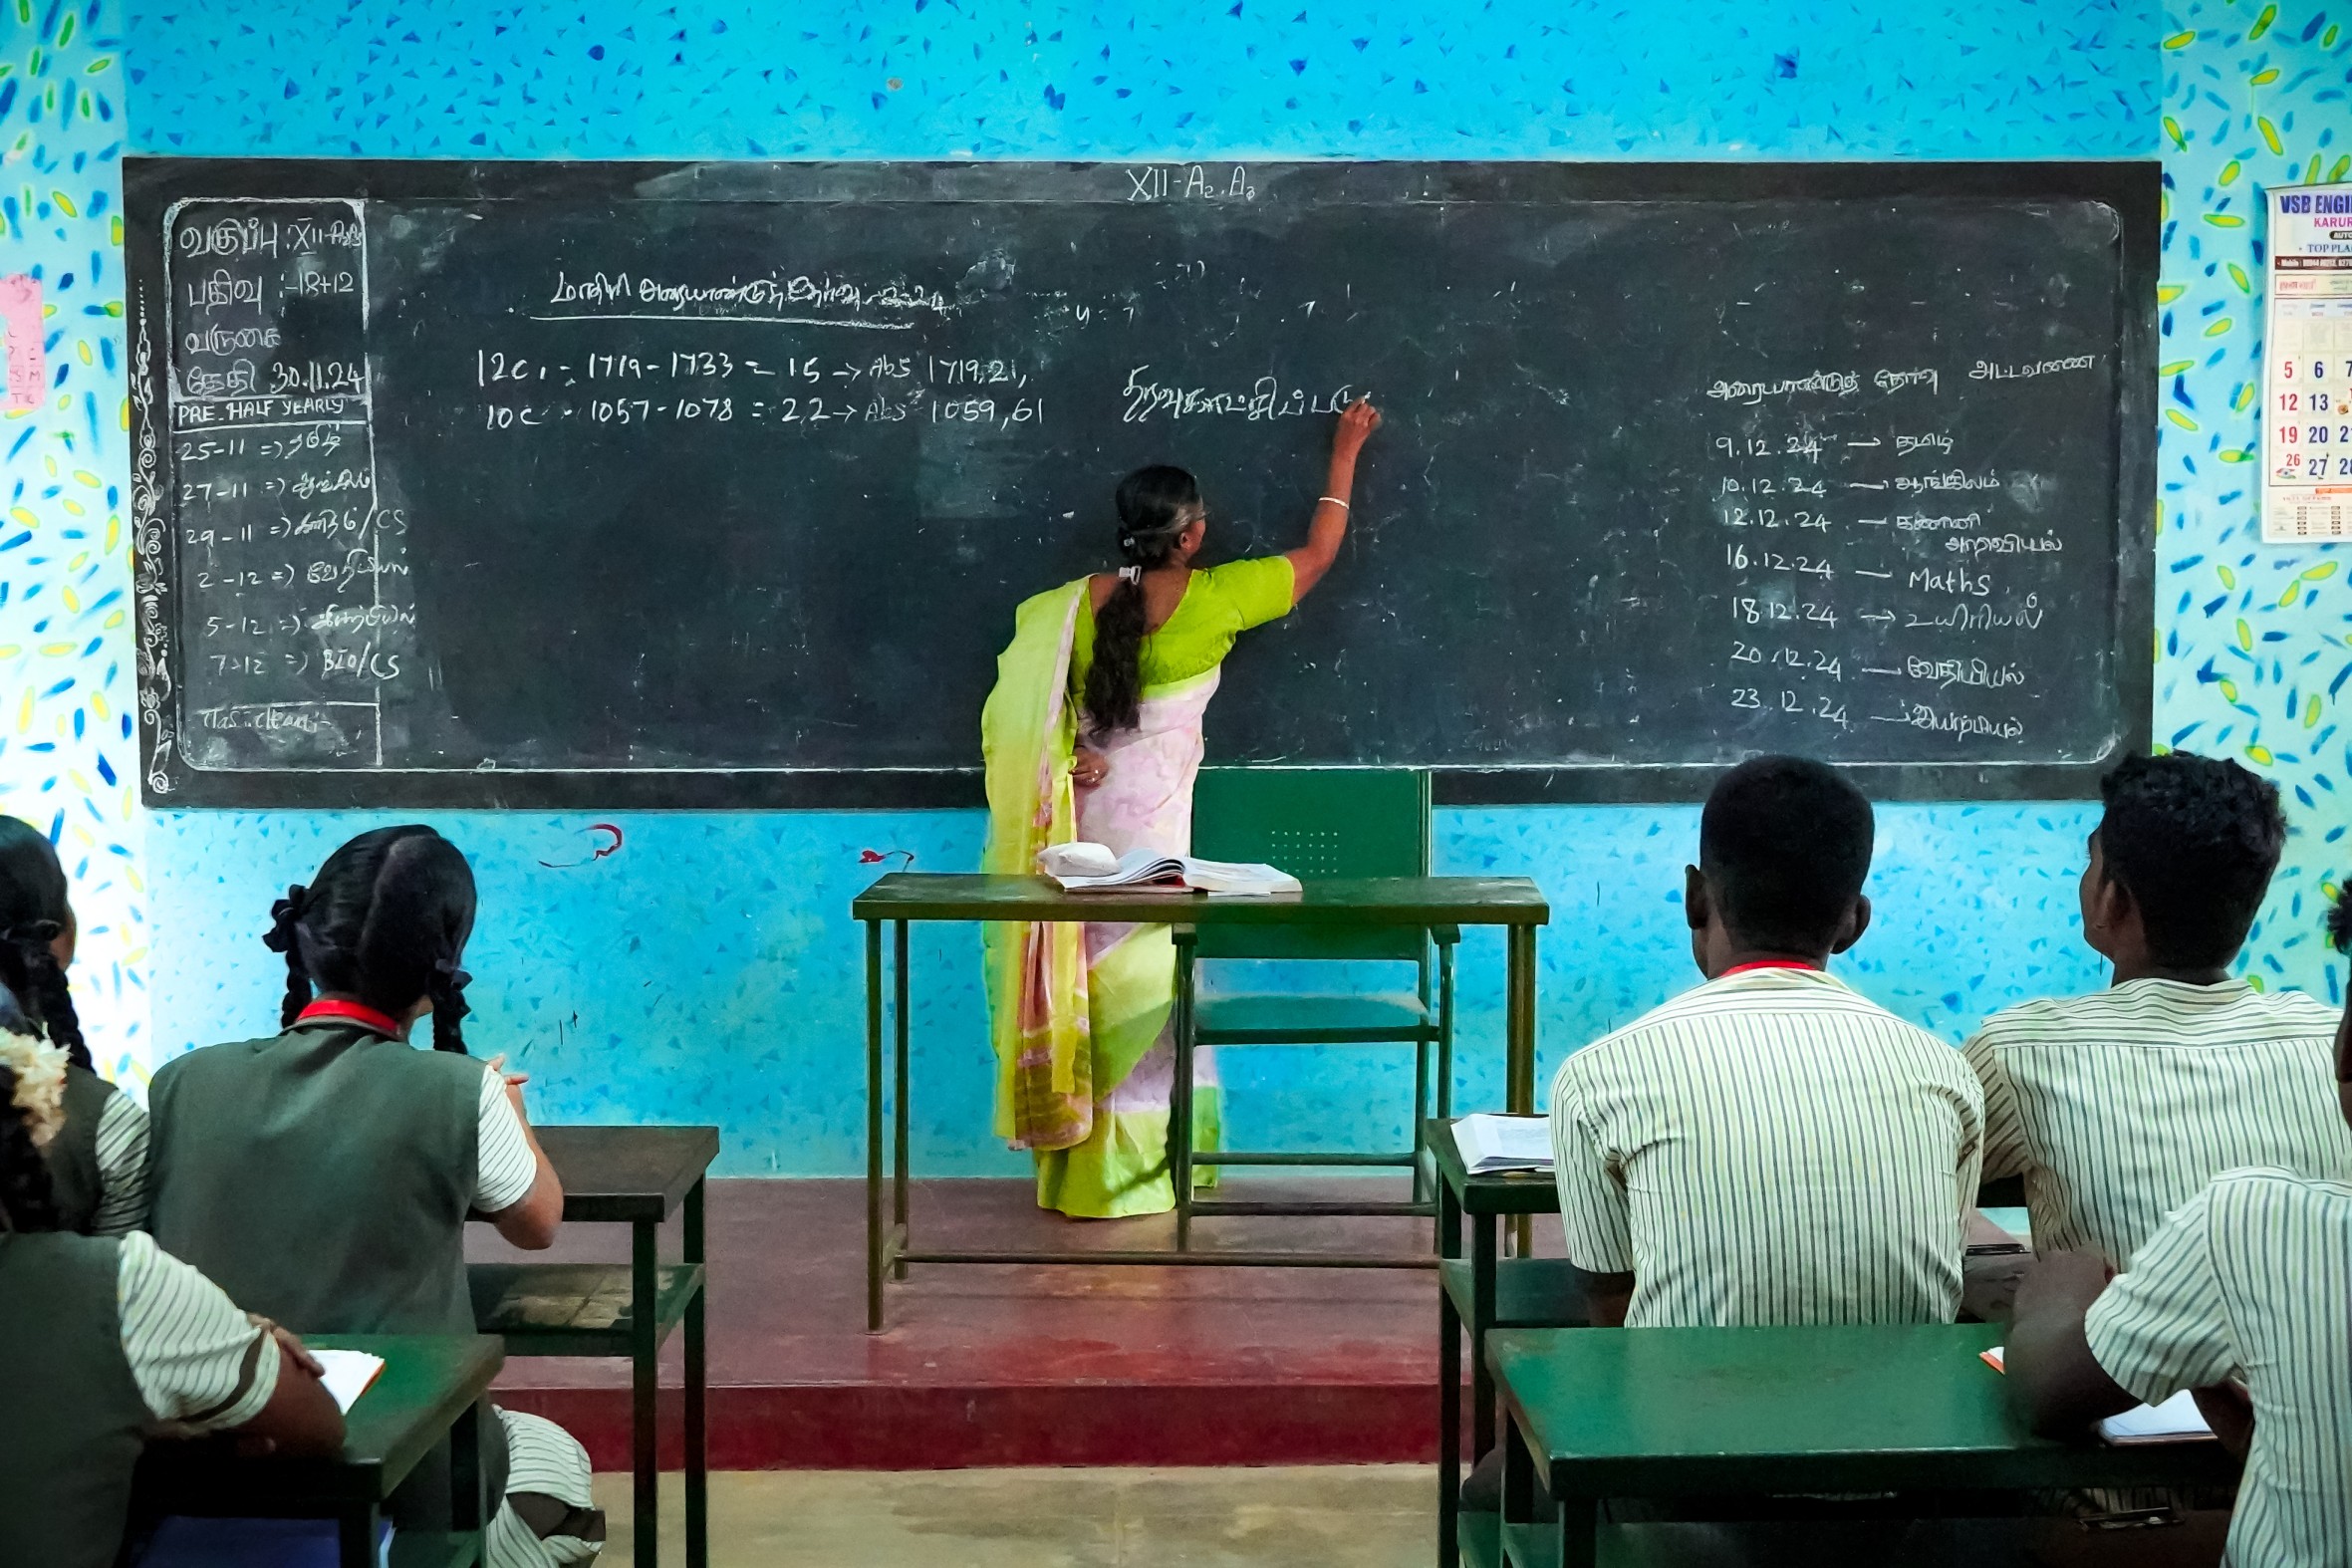 XII-A₂.A₃
வகுப்பு :XII-A₂A₃
பதிவு :-18+12
வருகை
தேதி 30.11.24
PRE-HALF YEARLY
25-11 => தமிழ்
27-11 => ஆங்கிலம்
29-11 => கணிதம்/CS
2-12 => வேதியியல்
5-12 =>
7-12 => BIO/CS
மாதிரி அரையாண்டுத் தேர்வு
12C1 - 1719-1733 = 15 → Abs 1719,21,
10C - 1057-1078 = 22 → Abs 1059,61
அரையாண்டுத் தேர்வு அட்டவணை
9.12.24 → தமிழ்
10.12.24 → ஆங்கிலம்
12.12.24 – கணினி
அறிவியல்
16.12.24 — Maths
18.12.24 → உயிரியல்
20.12.24 — வேதியியல்
23.12.24 → இயற்பியல்
VSB ENGI
KARUR
TOP PLA
5 6 7
12 13
19 20 21
26 27 28